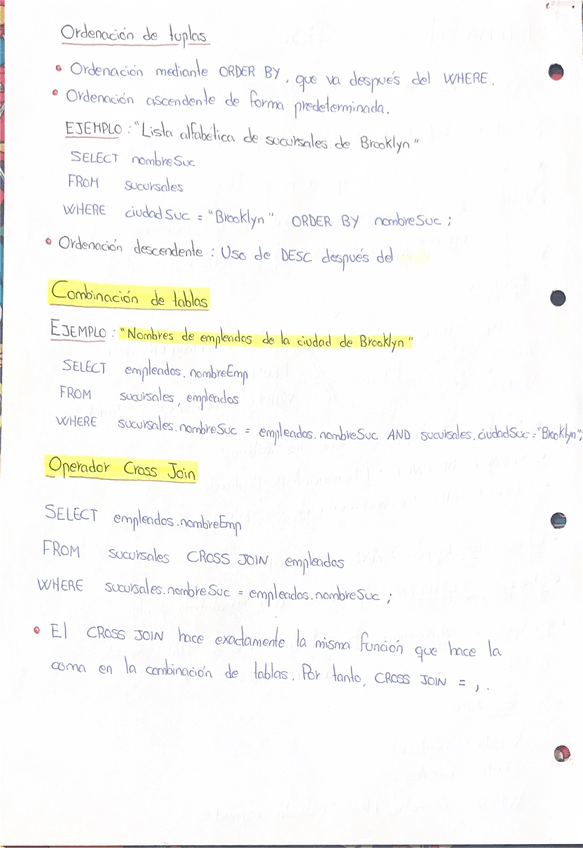 Ordenación de tuplas
• Ordenación mediante ORDER BY, que va después del WHERE.
• Ordenación ascendente de forma predeterminada.
EJEMPLO: "Lista alfabética de sucursales de Brooklyn"
SELECT nombreSuc
FROM sucursales
WHERE ciudadSuc = "Brooklyn" ORDER BY nombreSuc;
• Ordenación descendente: Uso de DESC después del
Combinación de tablas
EJEMPLO: "Nombres de empleados de la ciudad de Brooklyn"
SELECT empleados.nombreEmp
FROM sucursales, empleados
WHERE sucursales.nombreSuc = empleados.nombreSuc AND sucursales.ciudadSuc = "Brooklyn";
Operador Cross Join
SELECT empleados.nombreEmp
FROM sucursales CROSS JOIN empleados
WHERE sucursales.nombreSuc = empleados.nombreSuc;
• El CROSS JOIN hace exactamente la misma función que hace la
coma en la combinación de tablas. Por tanto, CROSS JOIN = ,.